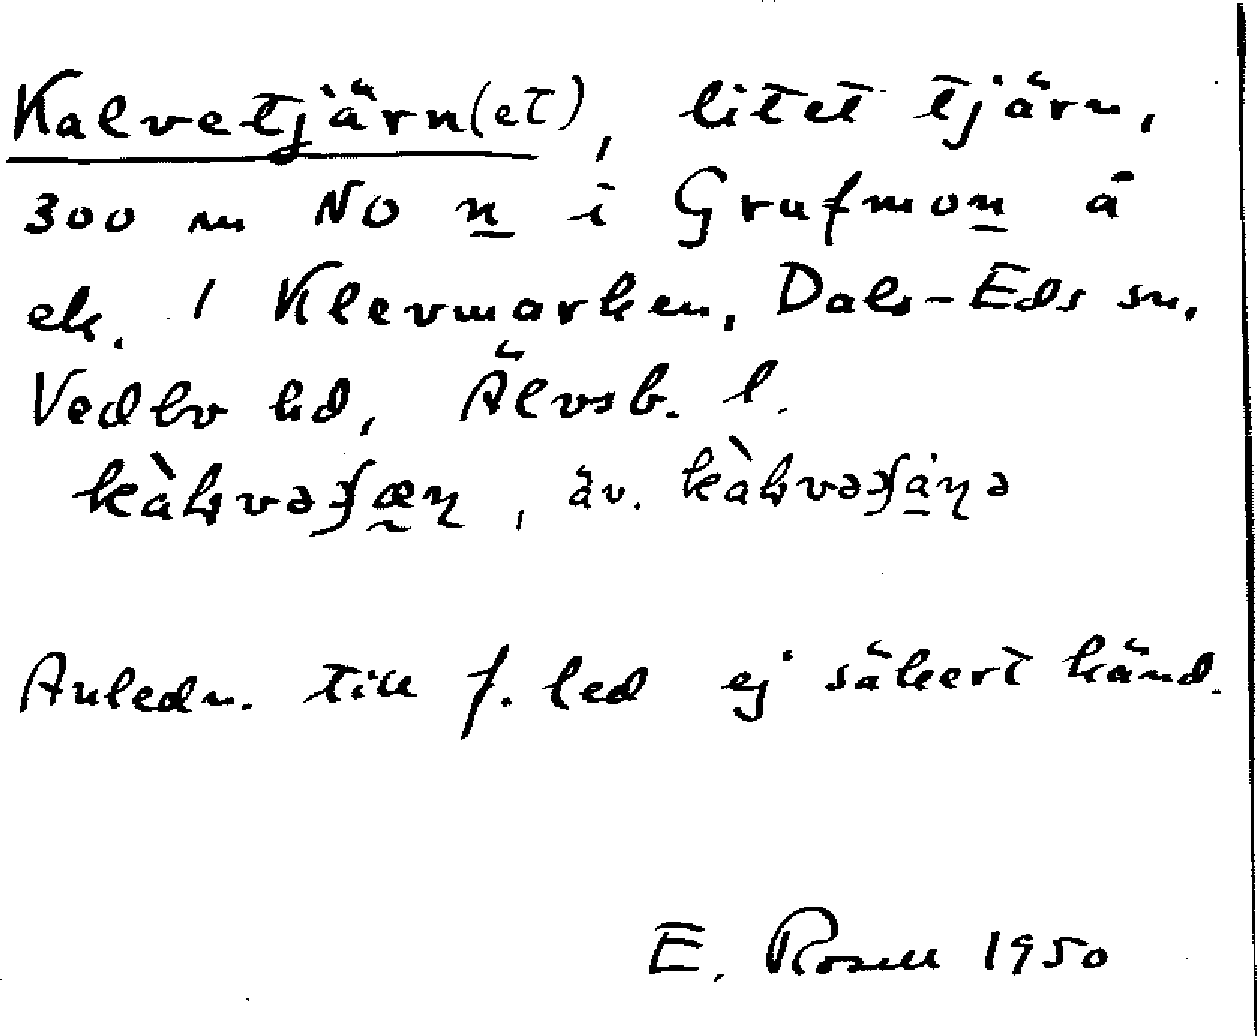 Kalvetjärn(et), litet tjärn,
300 m NO n i Grufmon å
ek. 1 Klevmarken, Dals-Eds sn,
Vedbo hd, Älvsb. l.
äv.
Anledn. till f. led ej säkert känd.
E. Rosell 1950